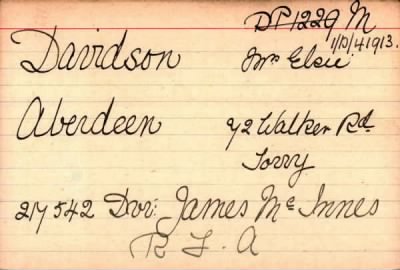 DP 1229 M
1/D/41913.
Davidson
Mrs Elsie
Aberdeen
72 Walker Rd.
Torry
217542 Dvr: James Mc Innes
R F A